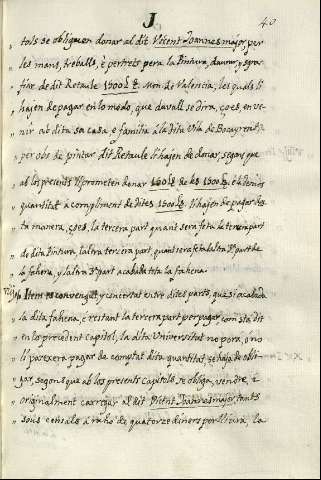 J
40
tots se obliguen donar al dit Vicent Joannes major, per
les mans, treballs, è pertrets pera la Pintura, daurar, y
fiar de dit Retaule 1500 ll. Mon. de Valencia, les quals li
hajen de pagar en lo modo, que davall se dira, ço es, en ve-
nir ab dita sa casa, è familia à la dita Vila de Bocayrent,
per obs de pintar dit Retaule li hajen de donar, segons que
ab los presents li prometen donar de les 1500 ll. è la demès
quantitat à compliment de dites 1500 ll. li hajen de pagar de
ta manera, ço es, la tercera part quant sera feta la tercera part
de dita Pintura, la altra tercera part quant sera feta la altra 3ª part de
la fahena, y la altra 3ª part acabada tota la fahena.
Item es convengut, y concertat entre dites parts, que si acabada
la dita fahena, è restant la tercera part per pagar com sta dit
en lo precedent capitol, la dita Universitat no porà, ò no
li pareixera pagar de comptat dita quantitat se haja de obli-
gar, segons que ab los presents Capitols se obliga, vendre, è
originalment carregar al dit Vicent Joannes major, tants
sous censals à raho de quatorze diners per lliura, la